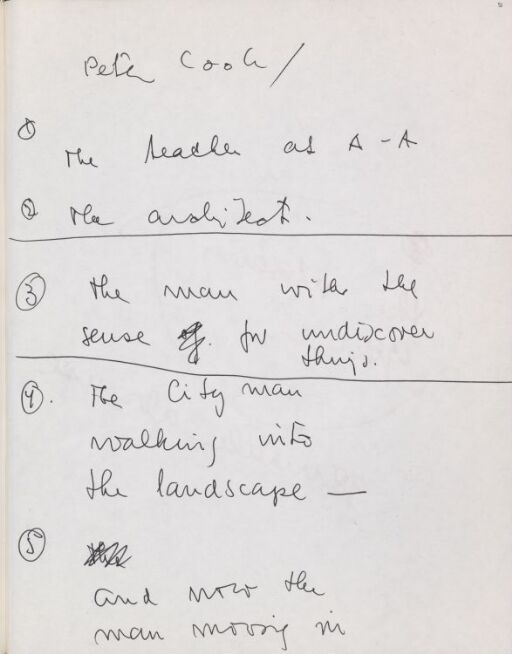 Peter Cook /
① The teacher at A-A
② The architect.
③ the man with the
sense for undiscover
things.
④. The City man
walking into
the landscape —
⑤
and now the
man moving in